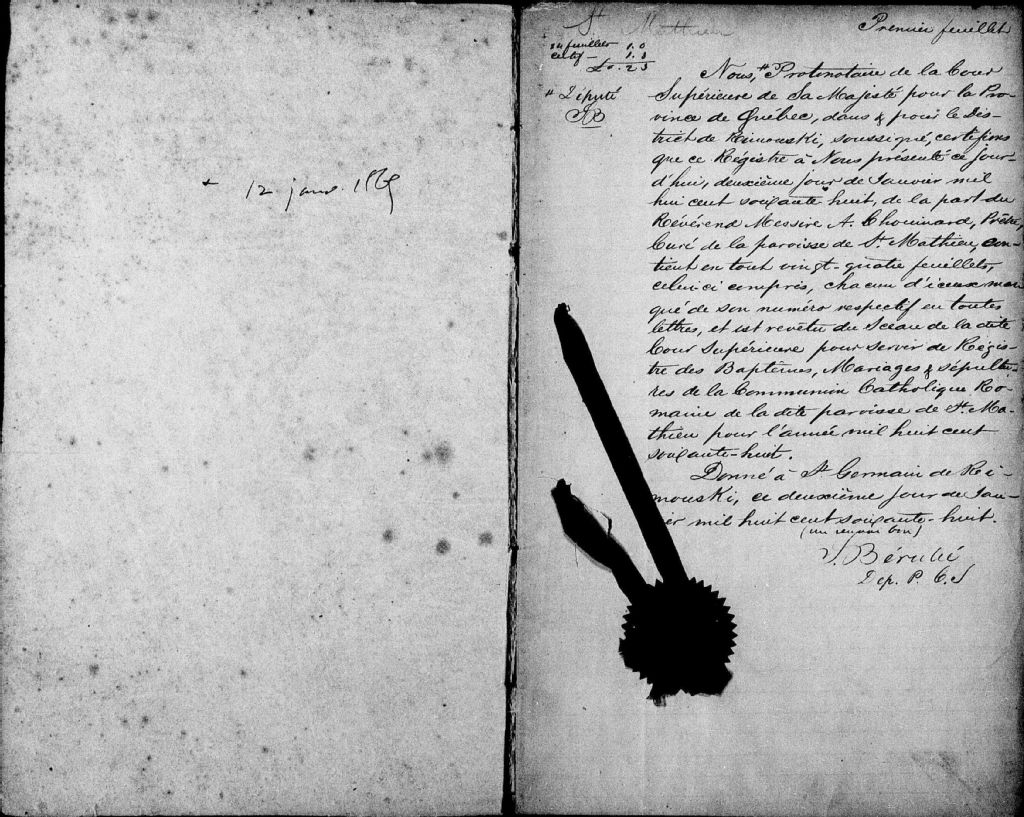 12 janv. 1869
St Mathieu
Premier feuillet
24 feuillets 1.0
certif — 1.3
£0.2.3
# Député
Nous, # Protonotaire de la Cour
Supérieure de Sa Majesté pour la Pro-
vince de Québec, dans & pour le Dis-
trict de Rimouski, soussigné, certifions
que ce Régistre à Nous présenté ce jour-
d'hui, deuxième jour de Janvier mil
hui cent soixante huit, de la part du
Révérend Messire A. Chouinard, Prêtre,
Curé de la paroisse de St. Mathieu, con-
tient en tout vingt-quatre feuillets,
celui-ci compris, chacun d'iceux mar-
qué de son numéro respectif en toutes
lettres, et est revêtu du Sceau de la dite
Cour Supérieure pour servir de Régis-
tre des Baptêmes, Mariages & sépultu-
res de la Communion Catholique Ro-
maine de la dite paroisse de St. Ma-
thieu pour l'année mil huit cent
soixante-huit.
Donné à St Germain de Ri-
mouski, ce deuxième jour de Jan-
ier mil huit cent soixante-huit.
(un renvoi bon)
Bérubé
Dep. P. C. S